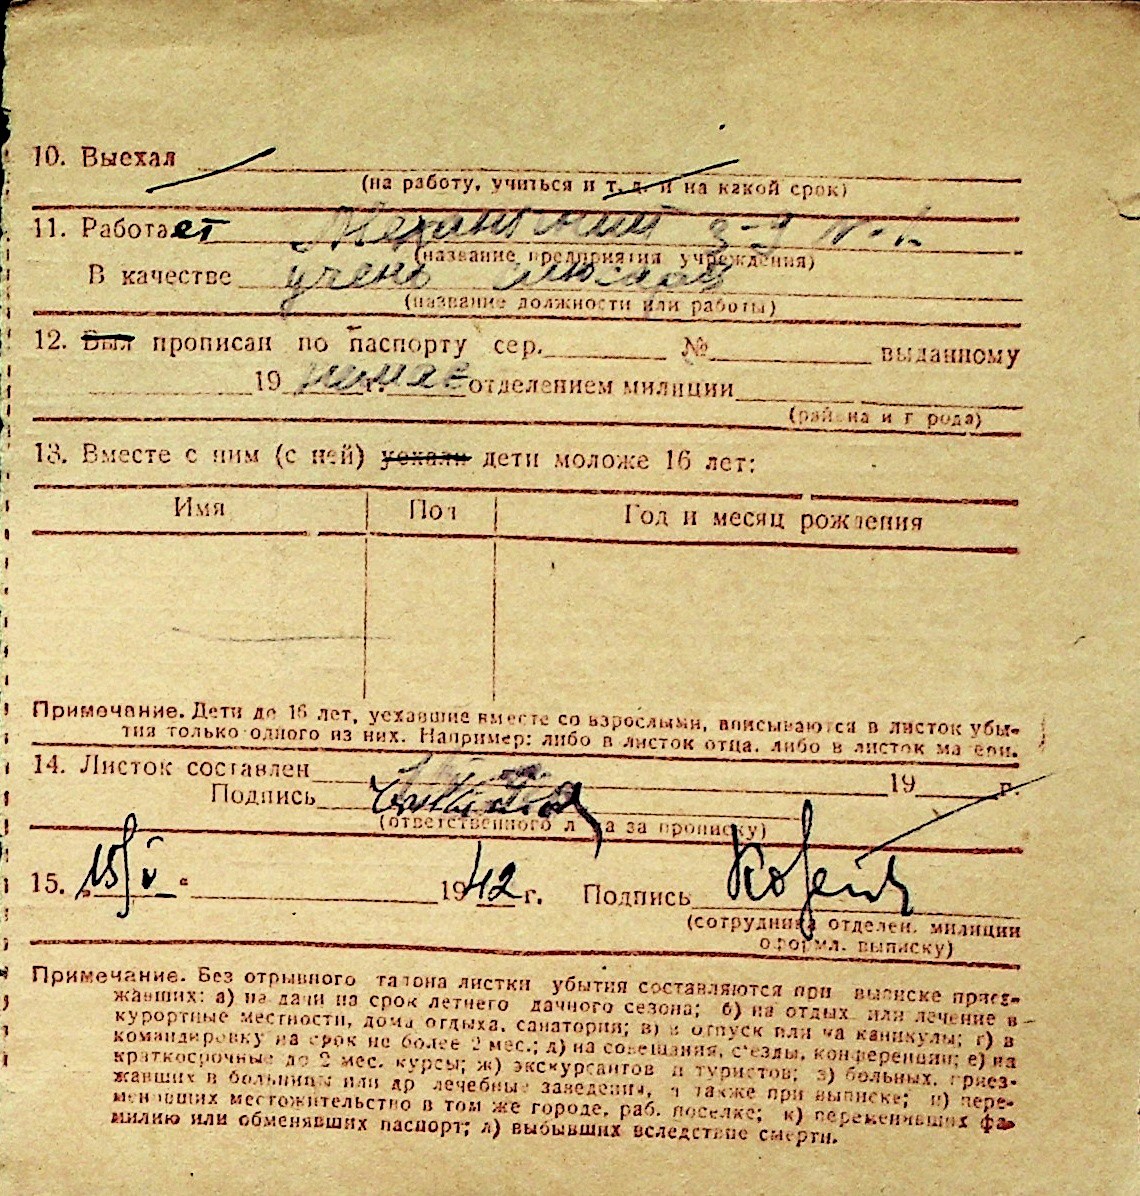 10. Выехал
(на работу, учиться и т. д. и на какой срок)
11. Работает Механический з-д № 1
(название предприятия учреждения)
В качестве учень слюсаря
(название должности или работы)
12. Был прописан по паспорту сер. № выданному
19 г. отделением милиции
(района и города)
13. Вместе с ним (с ней) уехали дети моложе 16 лет:
Имя Пол Год и месяц рождения
Примечание. Дети до 16 лет, уехавшие вместе со взрослыми, вписываются в листок убы-
тия только одного из них. Например: либо в листок отца, либо в листок матери.
14. Листок составлен 19 г.
Подпись
(ответственного лица за прописку)
15. „15/V“ 1942 г. Подпись
(сотрудника отделен. милиции
оформл. выписку)
Примечание. Без отрывного талона листки убытия составляются при выписке приез-
жавших: а) на дачи на срок летнего дачного сезона; б) на отдых или лечение в
курортные местности, дома отдыха, санатории; в) в отпуск или на каникулы; г) в
командировку на срок не более 2 мес.; д) на совещания, съезды, конференции; е) на
краткосрочные до 2 мес. курсы; ж) экскурсантов и туристов; з) больных, приез-
жавших в больницы или др лечебные заведения, а также при выписке; и) пере-
менивших местожительство в том же городе, раб. поселке; к) переменивших фа-
милию или обменявших паспорт; л) выбывших вследствие смерти.